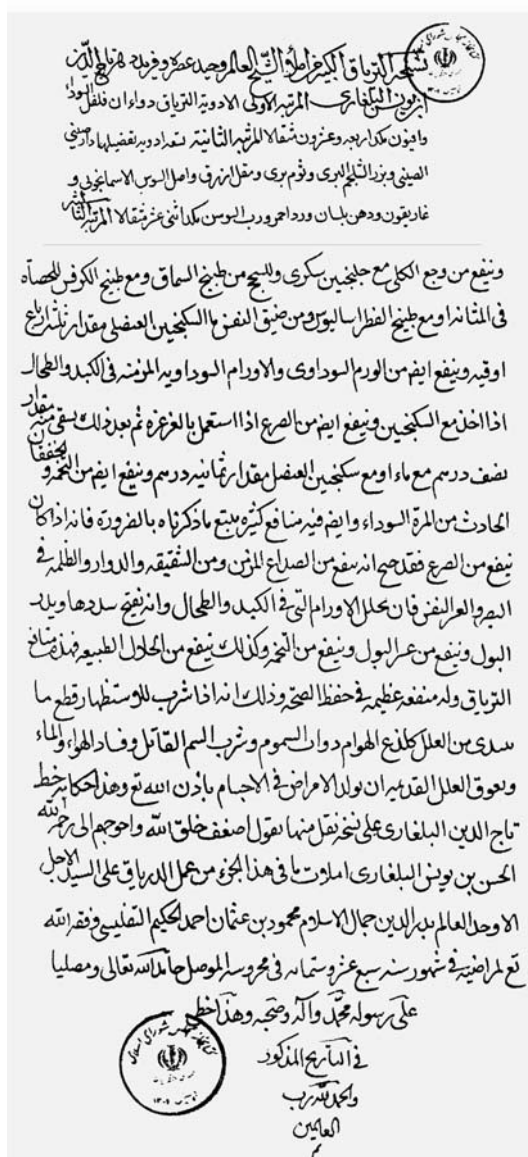 نسخة الترياق الكبير من املاء الشيخ العالم وحيد عصره وفريد دهره تاج الدين
ابن يونس البلغارى المرتبة الاولى الادوية الترياق دواءان فلفل اسود
وافيون مكد اربعه وعشرون مثقالا المرتبة الثانية تعداد ادويه تفضيلها دارصينى
الصينى وبزر الشلجم البرى وثوم برى ومقل ازرق واصل السوس الاسمانجونى و
غاريقون ودهن بلسان وورد احمر ورب السوس مكد اثنى عشر مثقالا المرتبة الثالثة
وينفع من وجع الكلى مع جلنجبين سكرى وللسحج من طبيخ السماق ومع طبيخ الكرفس للحصاة
فى المثانه او مع طبيخ الفطراساليوس ومن ضيق النفس بالسكنجبين العنصلى مقدار ثلثة ارباع
اوقيه وينفع ايضم من الورم السوداوى والاورام السوداويه المزمنه فى الكبد والطحال
اذا اخذ مع السكنجبين وينفع ايضم من الصرع اذا استعمل بالغرغره ثم بعد ذلك يسقى منه مقدار
نصف درهم مع ماء او مع سكنجبين العنصل مقدار ثمانيه درهم وينفع ايضم من التخمه و الخفقان
الحادث من المرة السوداء وايضم فيه منافع كثيره يتبع ما ذكرناه بالضرورة فانه اذا كان
ينفع من الصرع فقد صح انه ينفع من الصداع المزمن ومن الشقيقه والدوار والظلمه فى
البصر والعسر النفس فان يحلل الاورام التى فى الكبد والطحال وانه يفتح سددها ويدر
البول وينفع من عسر البول وينفع من التخمه وكذلك ينفع من انحلال الطبيعه فهذه منافع
الترياق وله منفعه عظيمه فى حفظ الصحه وذلك انه اذا شرب للاستظهار قطع ما
يبتدى من العلل كلدغ الهوام ذوات السموم وشرب السم القاتل وفساد الهواء والماء
ويعوق العلل القديمه ان تولد الامراض فى الاجسام باذن الله تع وهذا حكاية خط
تاج الدين البلغارى على نسخه نقل منها يقول اضعف خلق الله واحوجهم الى رحمة الله
الحسن بن يونس البلغارى املات ما فى هذا الجزء من عمل الدرياق على السيد الاجل
الاوحد العالم بدر الدين جمال الاسلام محمود بن عثمان احمد الحكيم التفليسى وفقه الله
تع لمراضيه فى شهور سنه سبع عشر وستمائه فى محروسة الموصل حامدا لله تعالى ومصليا
على رسوله محمد واله وصحبه وهذا خط
فى التاريخ المذكور
والحمد لله رب
العالمين
تم